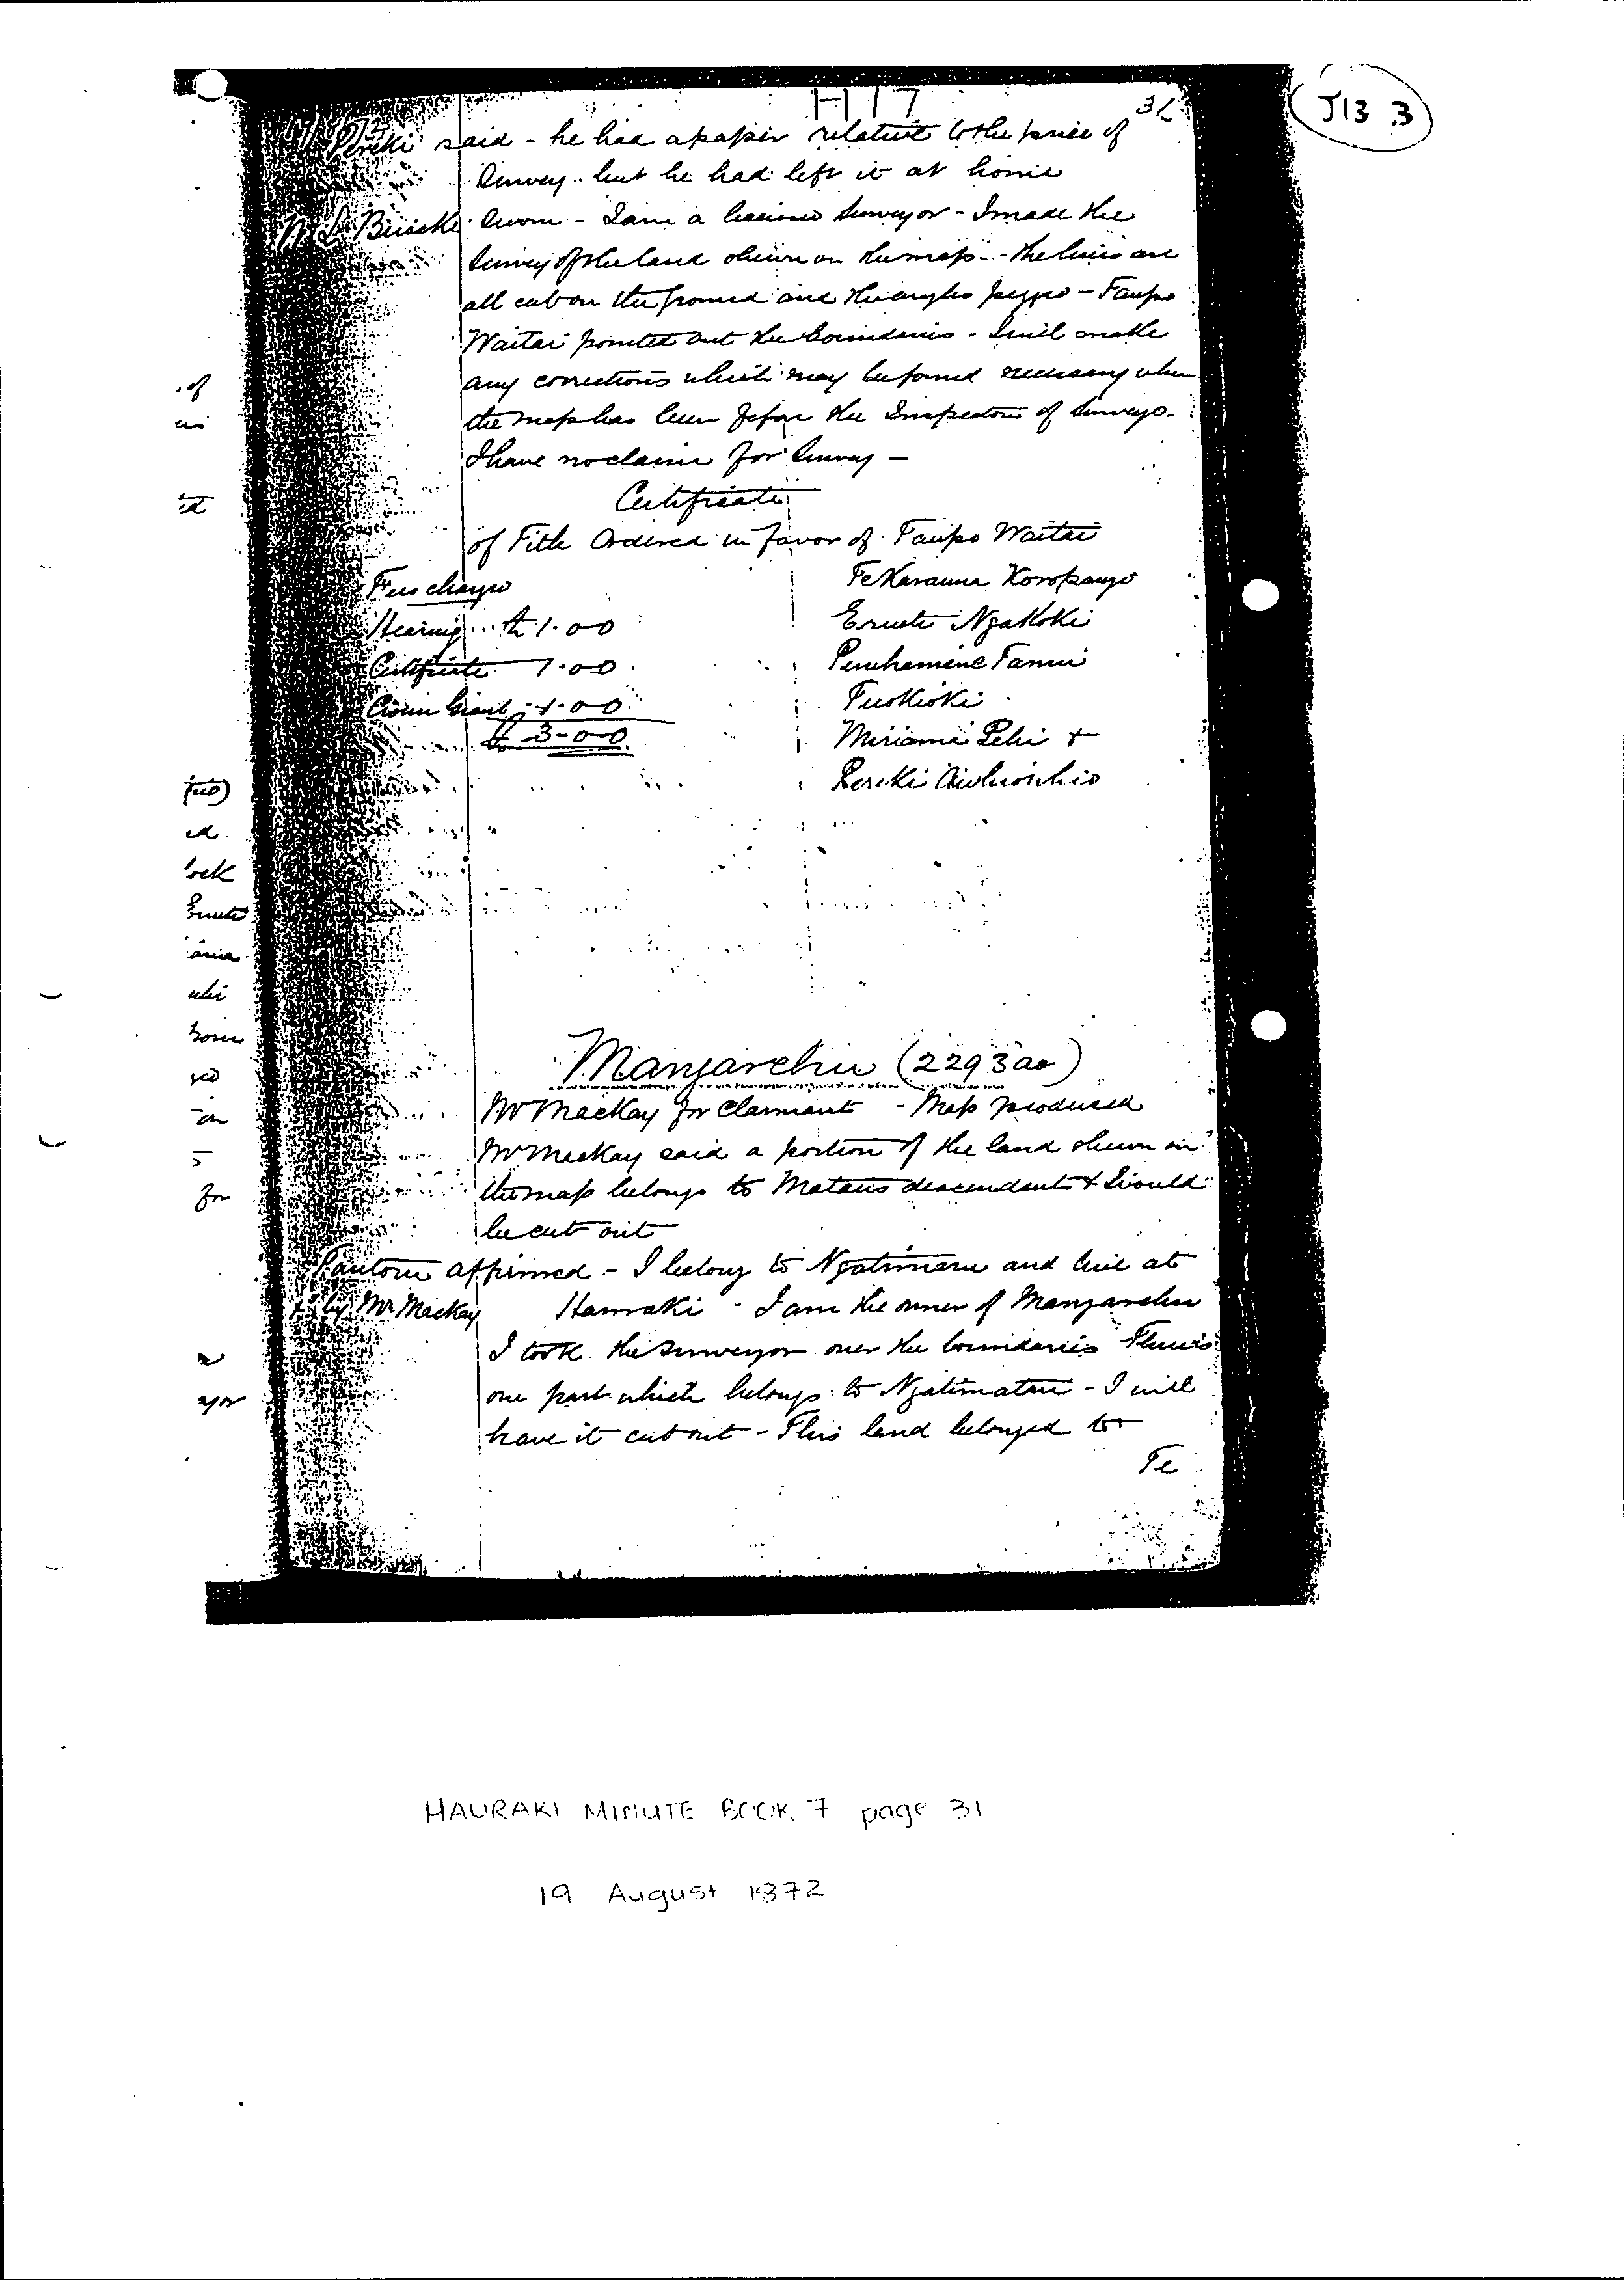 H 17
31
J13 .3
Pereki said - he had a paper relative to the price of
Survey but he had left it at home
Sworn - I am a licensed Surveyor - I made the
Survey of the land shewn on the map - the lines are
all cut on the ground and the angles pegged - Taupo
Waitai pointed out the boundaries - I will make
any corrections which may be found necessary when
the map has been before the Inspector of Surveys -
I have no claim for Survey -
Certificate
of Title Ordered in favor of Taipo Waitai
Te Karauna Koropango
Fees charged
Hearing 1.00
Eruete Ngakoki
Certificate 1.00
Penehamine Tanui
Crown Grant 1.00
Tuokioki
£ 3-00
Miriama Pehi +
Pereki
Mangarehu (2293 ac)
Mr Mackay for Claimant - Map produced
Mr Mackay said a portion of the land shewn on
the map belongs to Mataus descendants & should
be cut out
affirmed - I belong to Ngatimaru and live at
by Mr Mackay Hauraki - I am the owner of Mangarehu
I took the surveyor over the boundaries There is
one part which belongs to Ngatimatau - I will
have it cut out - This land belonged to
Te
of
ed
ock
Eruete
ania
for
HAURAKI MINUTE BOOK 7 page 31
19 August 1872